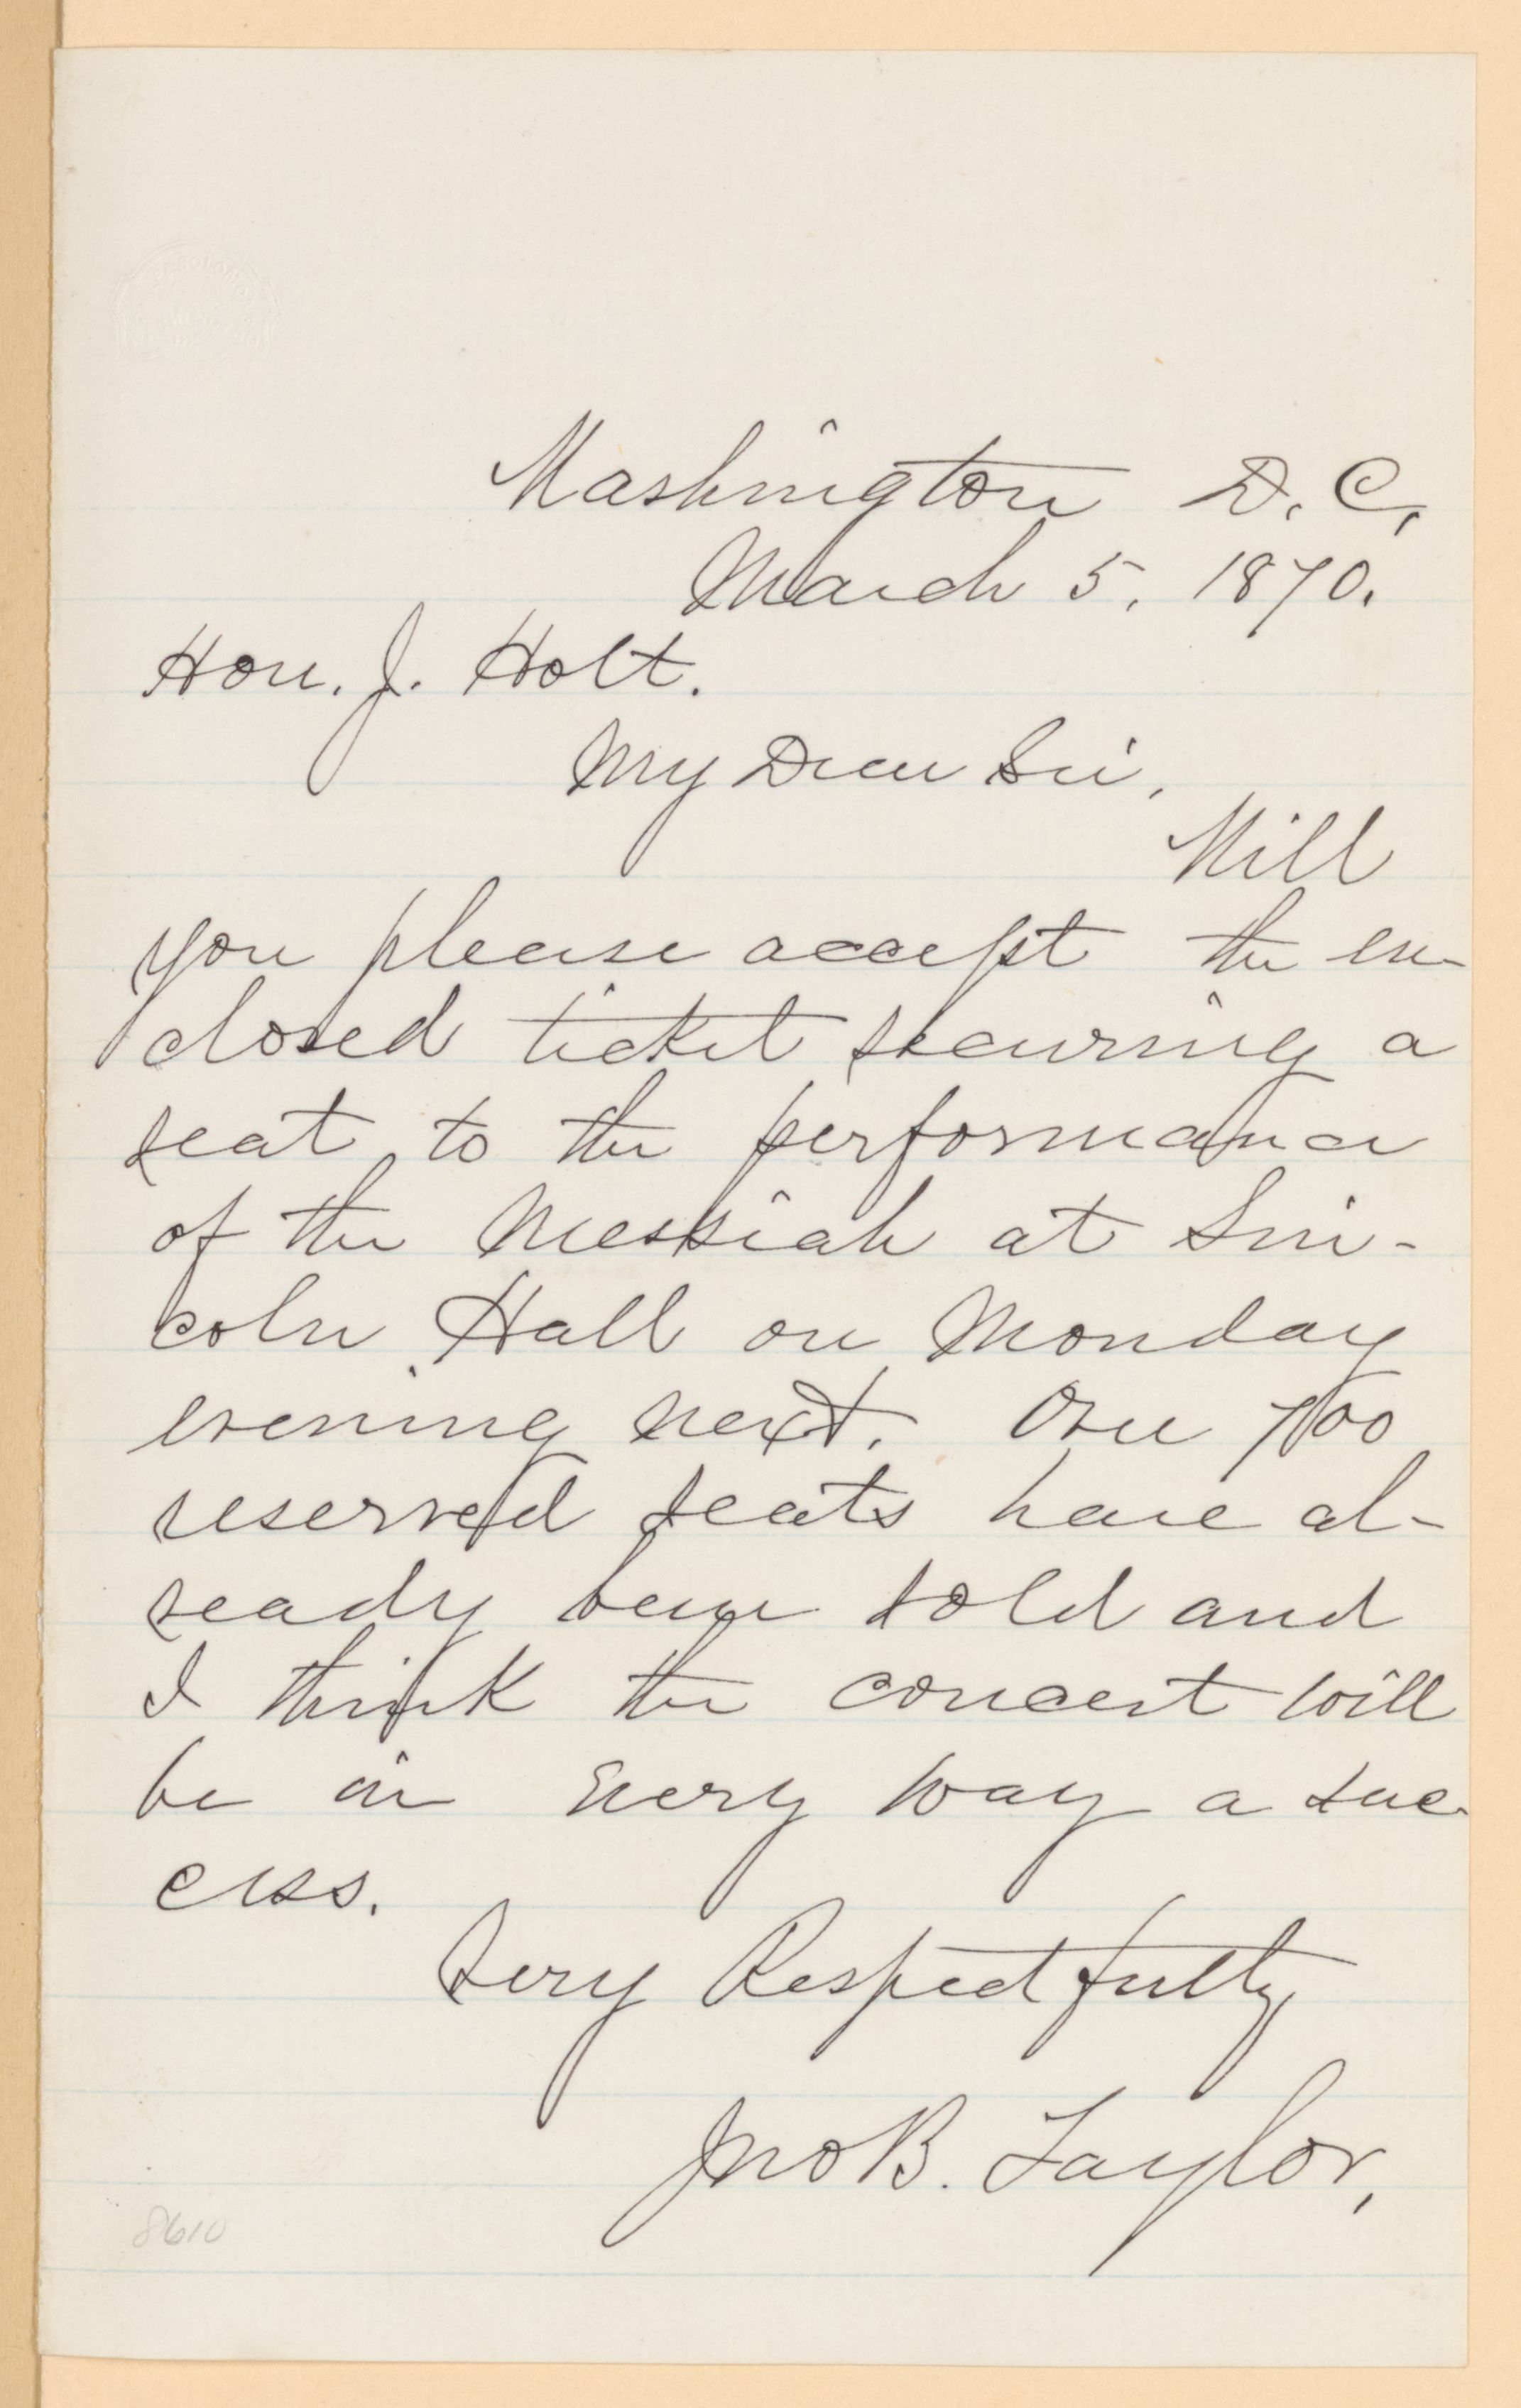 Washington D. C.
March 5, 1870.
Hon. J. Holt.
My Dear Sir,
Will
you please accept the en-
closed ticket securing a
seat to the performance
of the Messiah at Lin-
coln Hall on Monday
evening next. Over 700
reserved seats have al-
ready been sold and
I think the concert will
be in every way a suc-
cess.
Very Respectfully
Jno B. Taylor,
8610